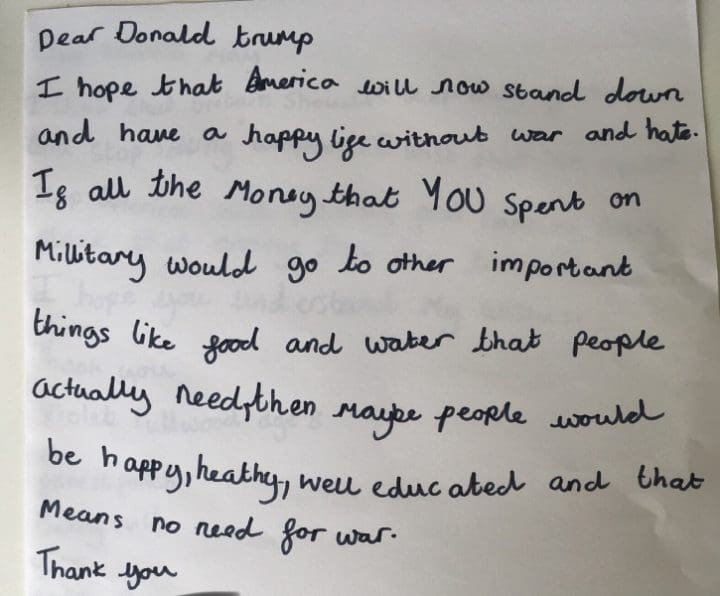 Dear Donald trump
I hope that America will now stand down
and have a happy life without war and hate.
If all the Money that YOU spent on
Military would go to other important
things like food and water that people
actually need, then maybe people would
be happy, heathy, well educated and that
Means no need for war.
Thank you